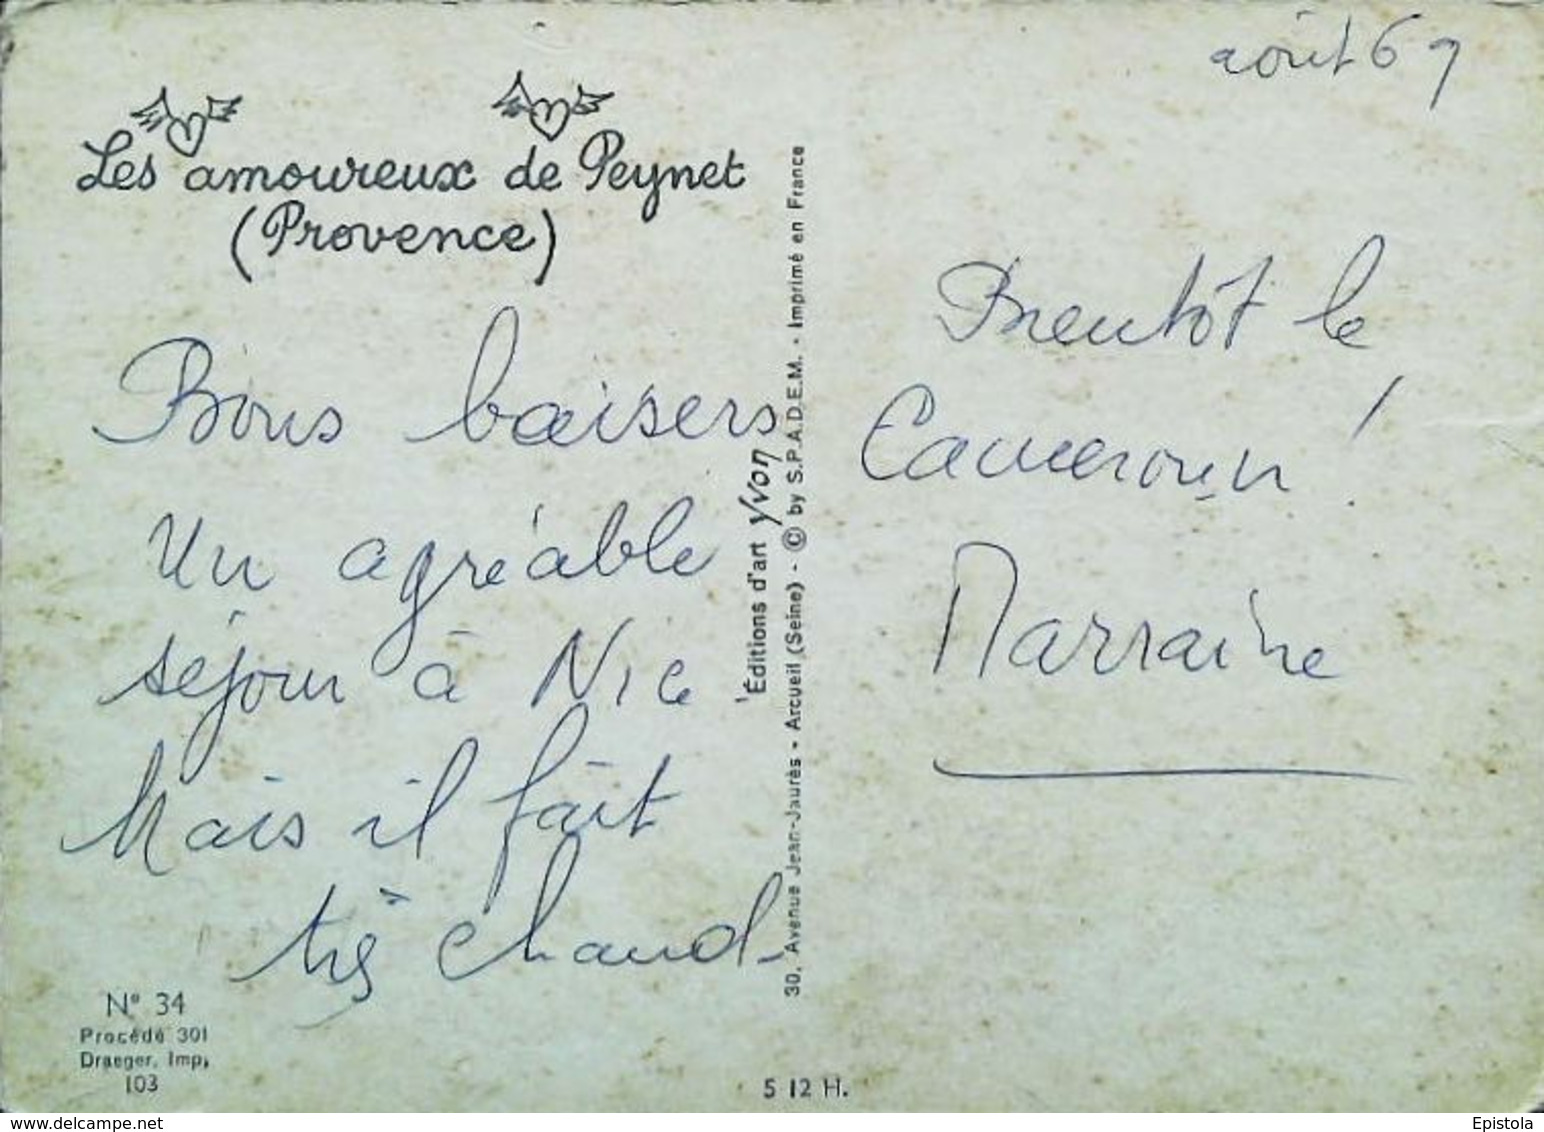 août 69
Les amoureux de Peynet
(Provence)
Bons baisers
Un agréable
séjour à Nice
Mais il fait
très chaud
Bientôt le
Cameroun !
Marraine
Éditions d'art Yvon
30, Avenue Jean-Jaurès - Arcueil (Seine) - © by S.P.A.D.E.M. - Imprimé en France
N° 34
Procédé 301
Draeger, Imp,
103
5 12 H.
www.delcampe.net
Epistola